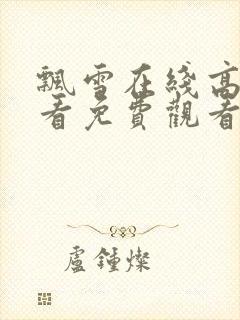 飄雪在綫高
看免費觀看
盧鍾燦